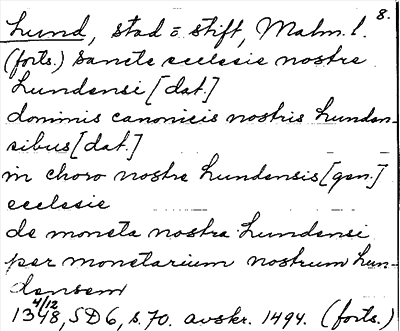 8.
Lund, stad o. stift, Malm. l.
(forts.) Sancte ecclesie nostre
Lundensi [dat.]
dominis canonicis nostris Lunden-
sibus [dat.]
in choro nostre Lundensis [gen.]
ecclesie
de moneta nostra Lundensi
per monetarium nostrum Lun-
densem
1348 4/12, SD 6, s. 70. avskr. 1494. (forts.)